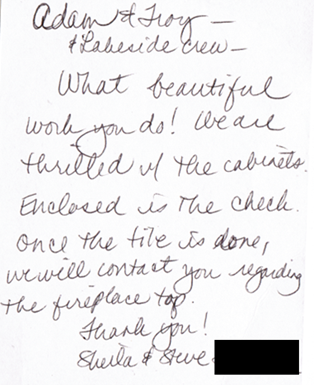 Adam & Troy —
& Lakeside crew —
What beautiful
work you do! We are
thrilled w/ the cabinets.
Enclosed is the check.
Once the tile is done,
we will contact you regarding
the fireplace top.
Thank you!
Sheila & Steve